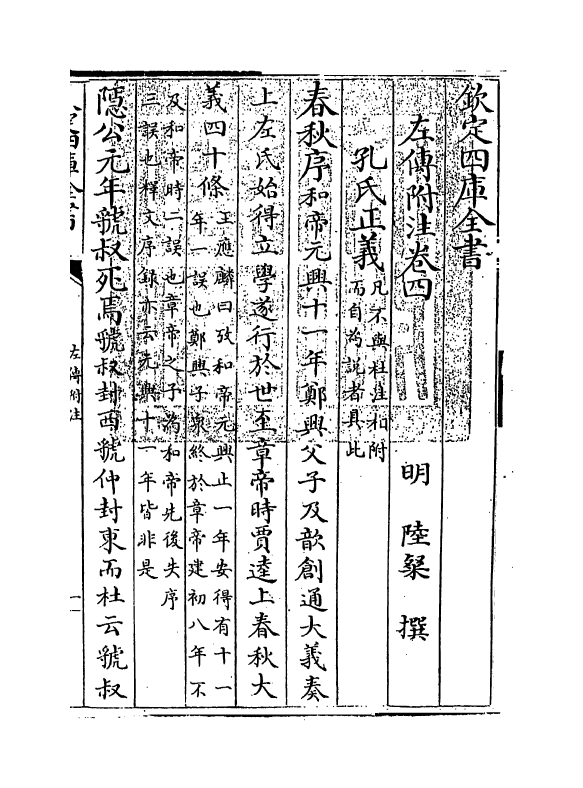 欽定四庫全書
左傳附注卷四
明 陸粲 撰
孔氏正義凡不與杜注相附
而自為説者具此
春秋序和帝元興十一年鄭興父子及歆創通大義奏
上左氏始得立學遂行於世至章帝時賈逵上春秋大
義四十條王應麟曰攷和帝元興止一年安得有十一
年一誤也鄭興子衆終於章帝建初八年不
及和帝時二誤也章帝之子為和帝先後失序
三誤也釋文序録亦云元興十一年皆非是
隱公元年虢叔死焉虢叔封西虢仲封東而杜云虢叔
左傳附注
一